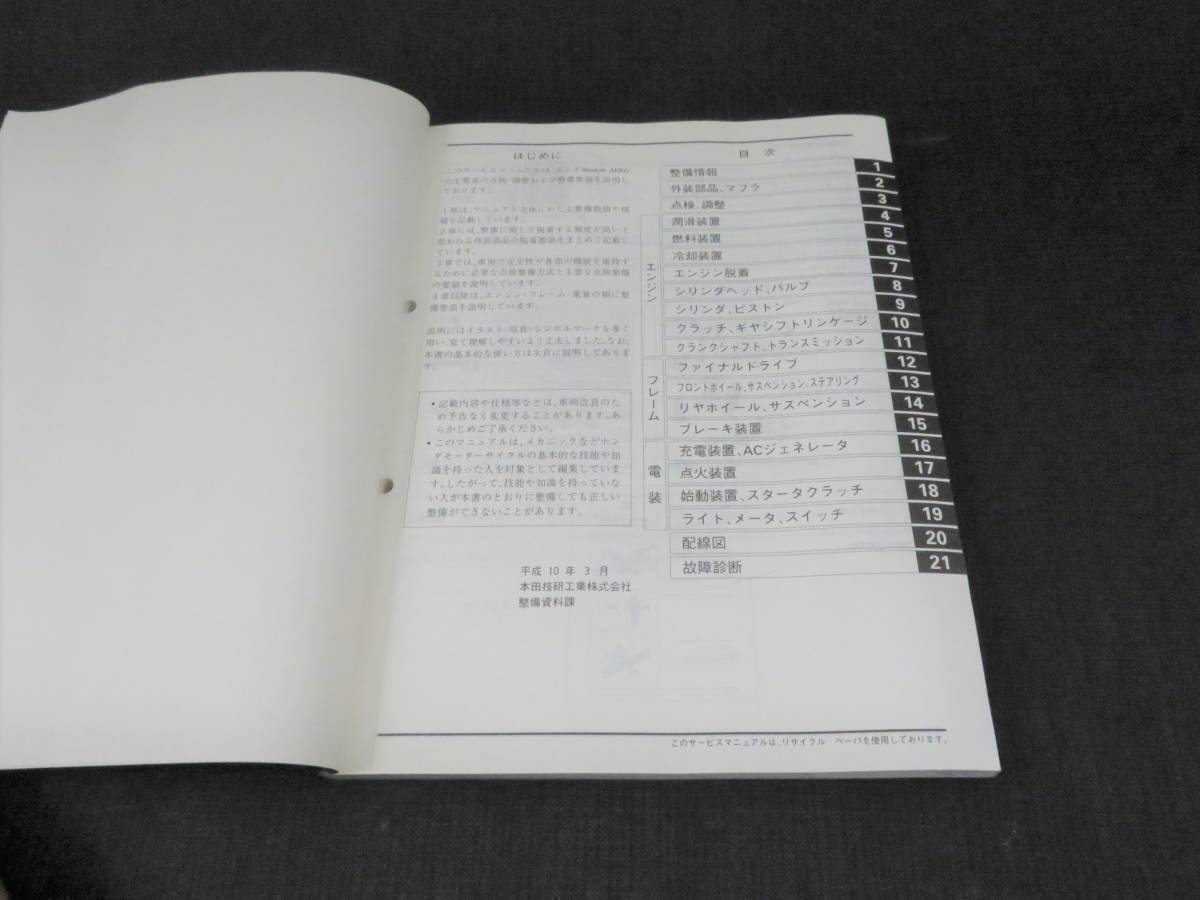 はじめに
このサービスマニュアルは、ホンダShadow AERO
の主要部の点検・調整および整備要領を説明し
ております。
1章は、マニュアル全体にわたる整備数値や情
報を記載しています。
2章には、整備に際して脱着する頻度が高いと
思われる外装部品の脱着要領をまとめて記載し
ています。
3章では、車両の安全性や各部の機能を維持す
るために必要な点検整備方式と主要な点検整備
の要領を説明しています。
4章以降は、エンジン・フレーム・電装の順に整
備要領を説明しています。
説明にはイラスト・写真・シンボルマークを多く
用い、見て理解しやすいよう工夫しました。なお、
本書の基本的な使い方は次頁に説明してありま
す。
• 記載内容や仕様等などは、車両改良のた
め予告なく変更することがあります。あ
らかじめご了承ください。
• このマニュアルは、メカニックなどホン
ダモーターサイクルの基本的な技能や知
識を持った人を対象として編集していま
す。したがって、技能や知識を持っていな
い人が本書のとおりに整備しても正しい
整備ができないことがあります。
平成 10 年 3 月
本田技研工業株式会社
整備資料課
目 次
整備情報 1
外装部品、マフラ 2
点検、調整 3
エンジン
潤滑装置 4
燃料装置 5
冷却装置 6
エンジン脱着 7
シリンダヘッド、バルブ 8
シリンダ、ピストン 9
クラッチ、ギヤシフトリンケージ 10
クランクシャフト、トランスミッション 11
フレーム
ファイナルドライブ 12
フロントホイール、サスペンション、ステアリング 13
リヤホイール、サスペンション 14
ブレーキ装置 15
電装
充電装置、ACジェネレータ 16
点火装置 17
始動装置、スタータクラッチ 18
ライト、メータ、スイッチ 19
配線図 20
故障診断 21
このサービスマニュアルは、リサイクル ペーパを使用しております。